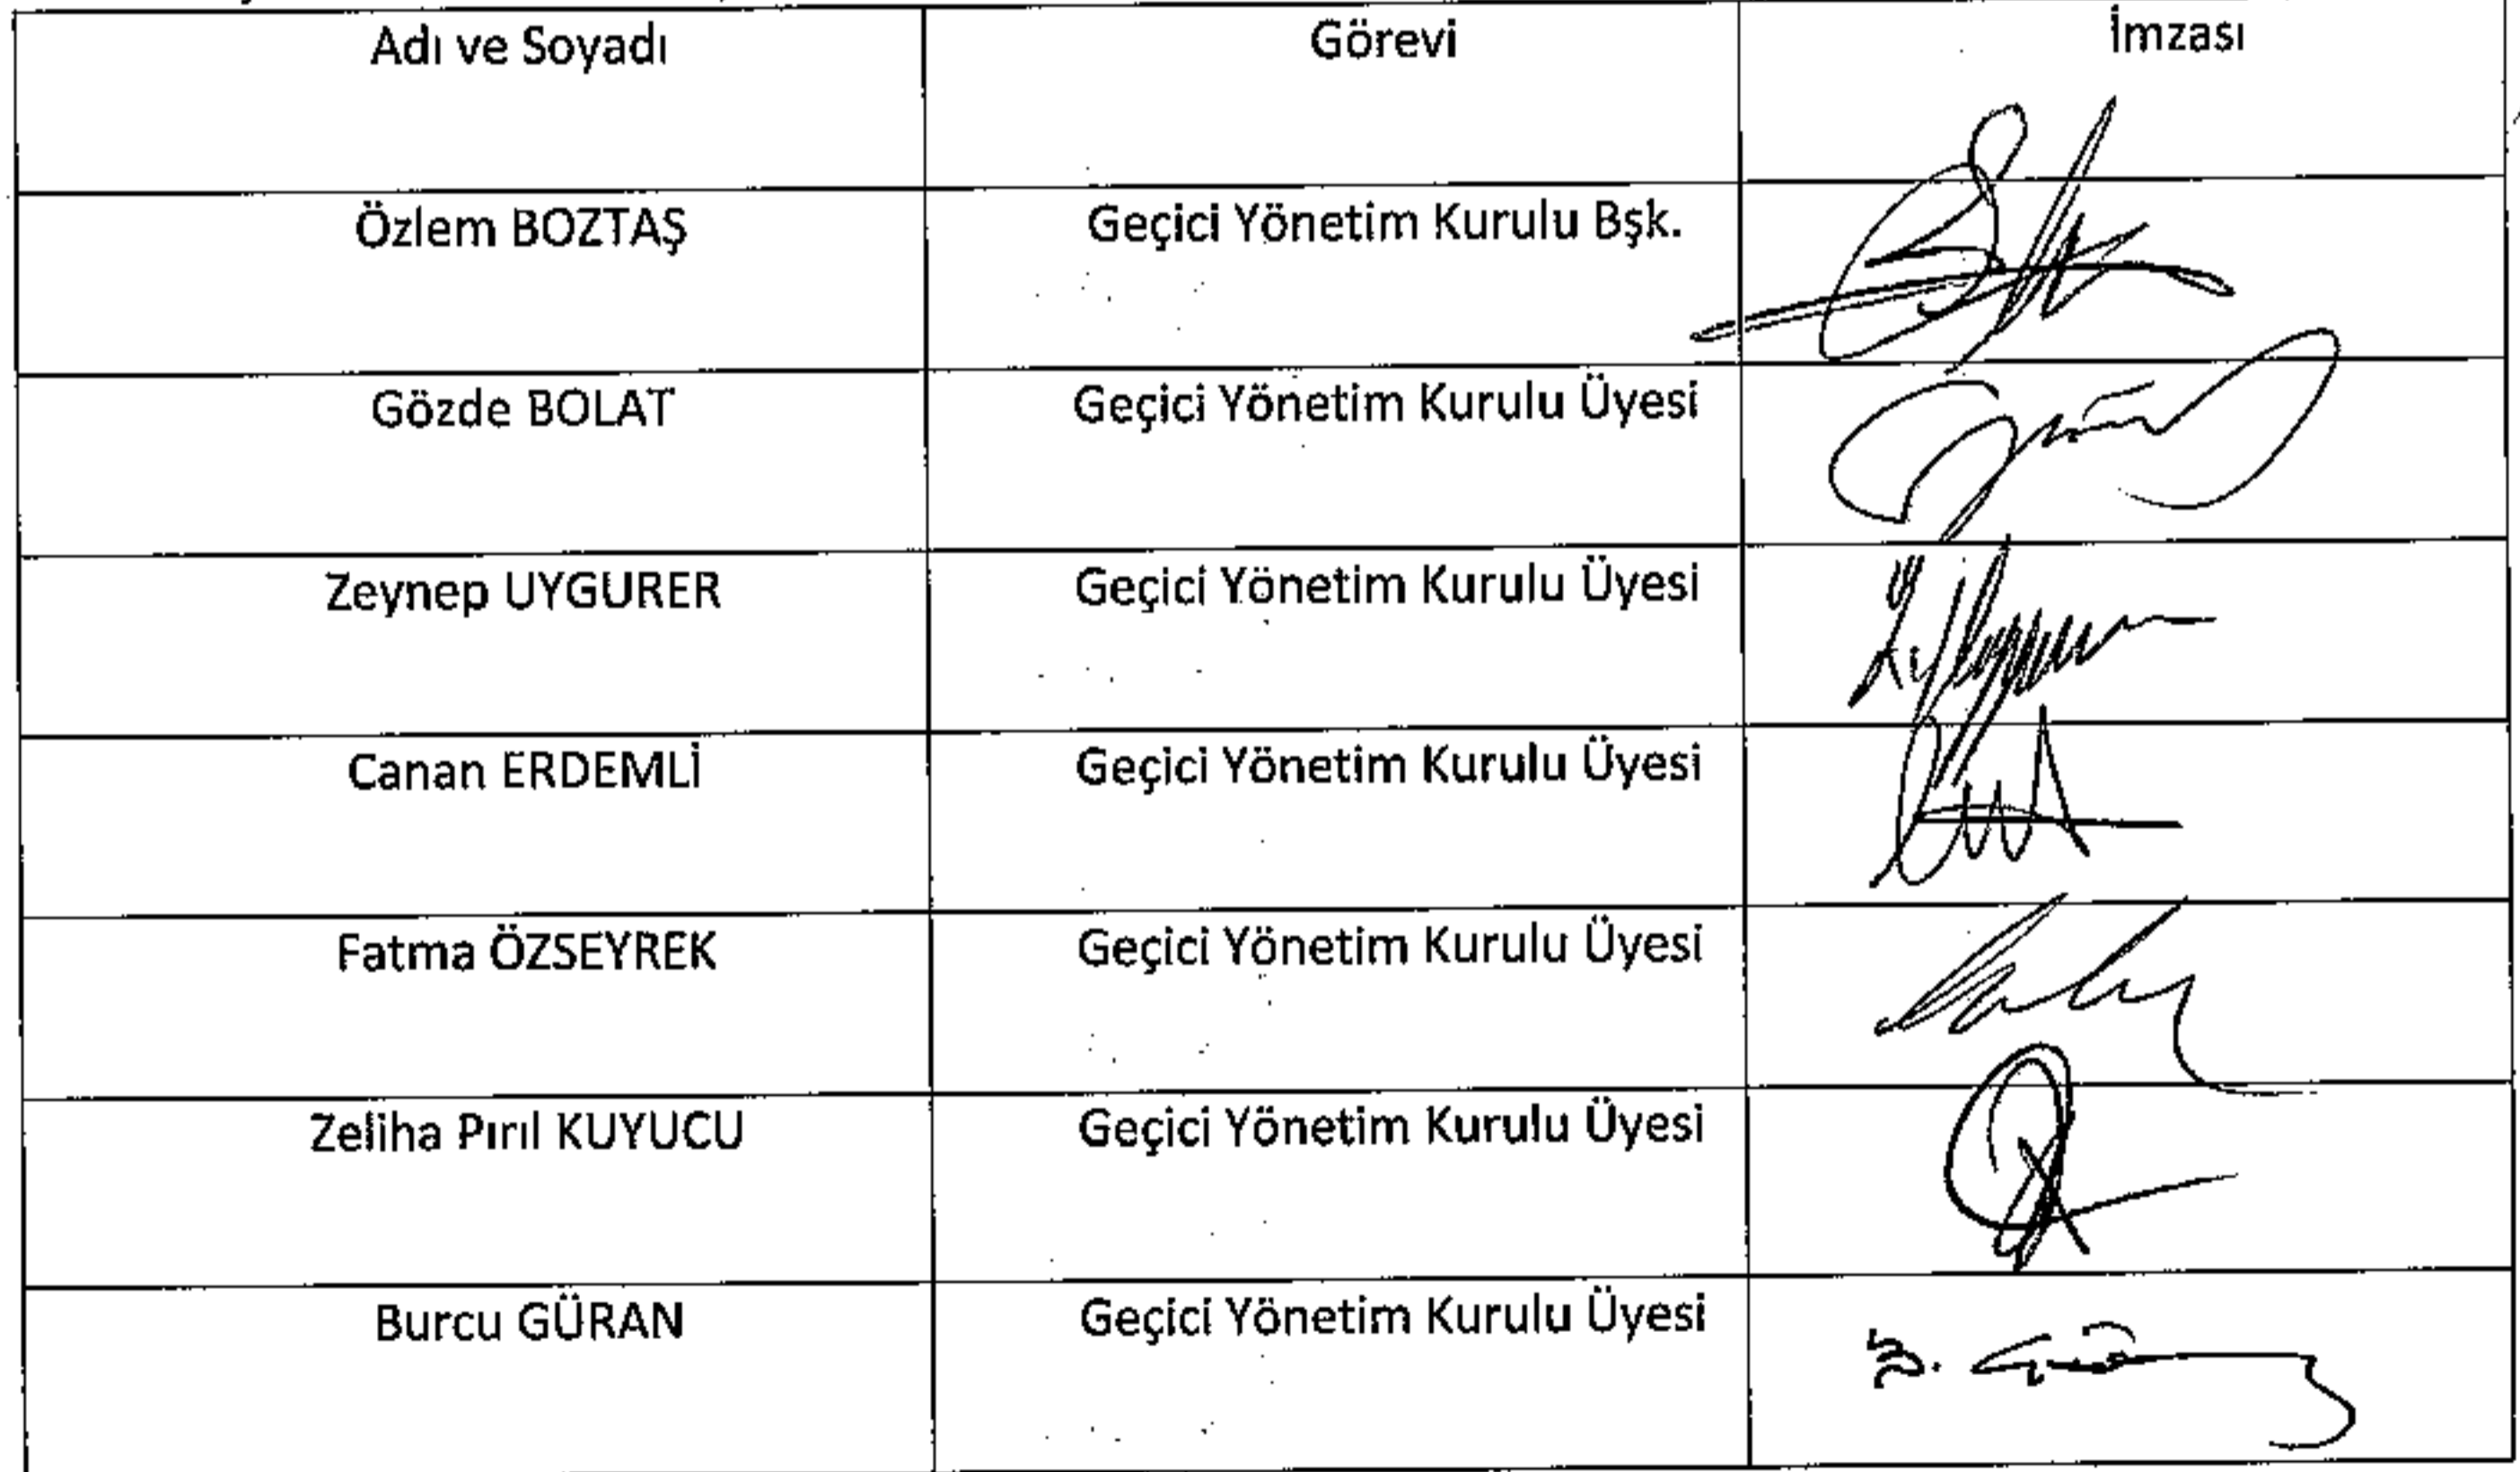 Adı ve Soyadı Görevi İmzası
Özlem BOZTAŞ Geçici Yönetim Kurulu Bşk.
Gözde BOLAT Geçici Yönetim Kurulu Üyesi
Zeynep UYGURER Geçici Yönetim Kurulu Üyesi
Canan ERDEMLİ Geçici Yönetim Kurulu Üyesi
Fatma ÖZSEYREK Geçici Yönetim Kurulu Üyesi
Zeliha Pırıl KUYUCU Geçici Yönetim Kurulu Üyesi
Burcu GÜRAN Geçici Yönetim Kurulu Üyesi